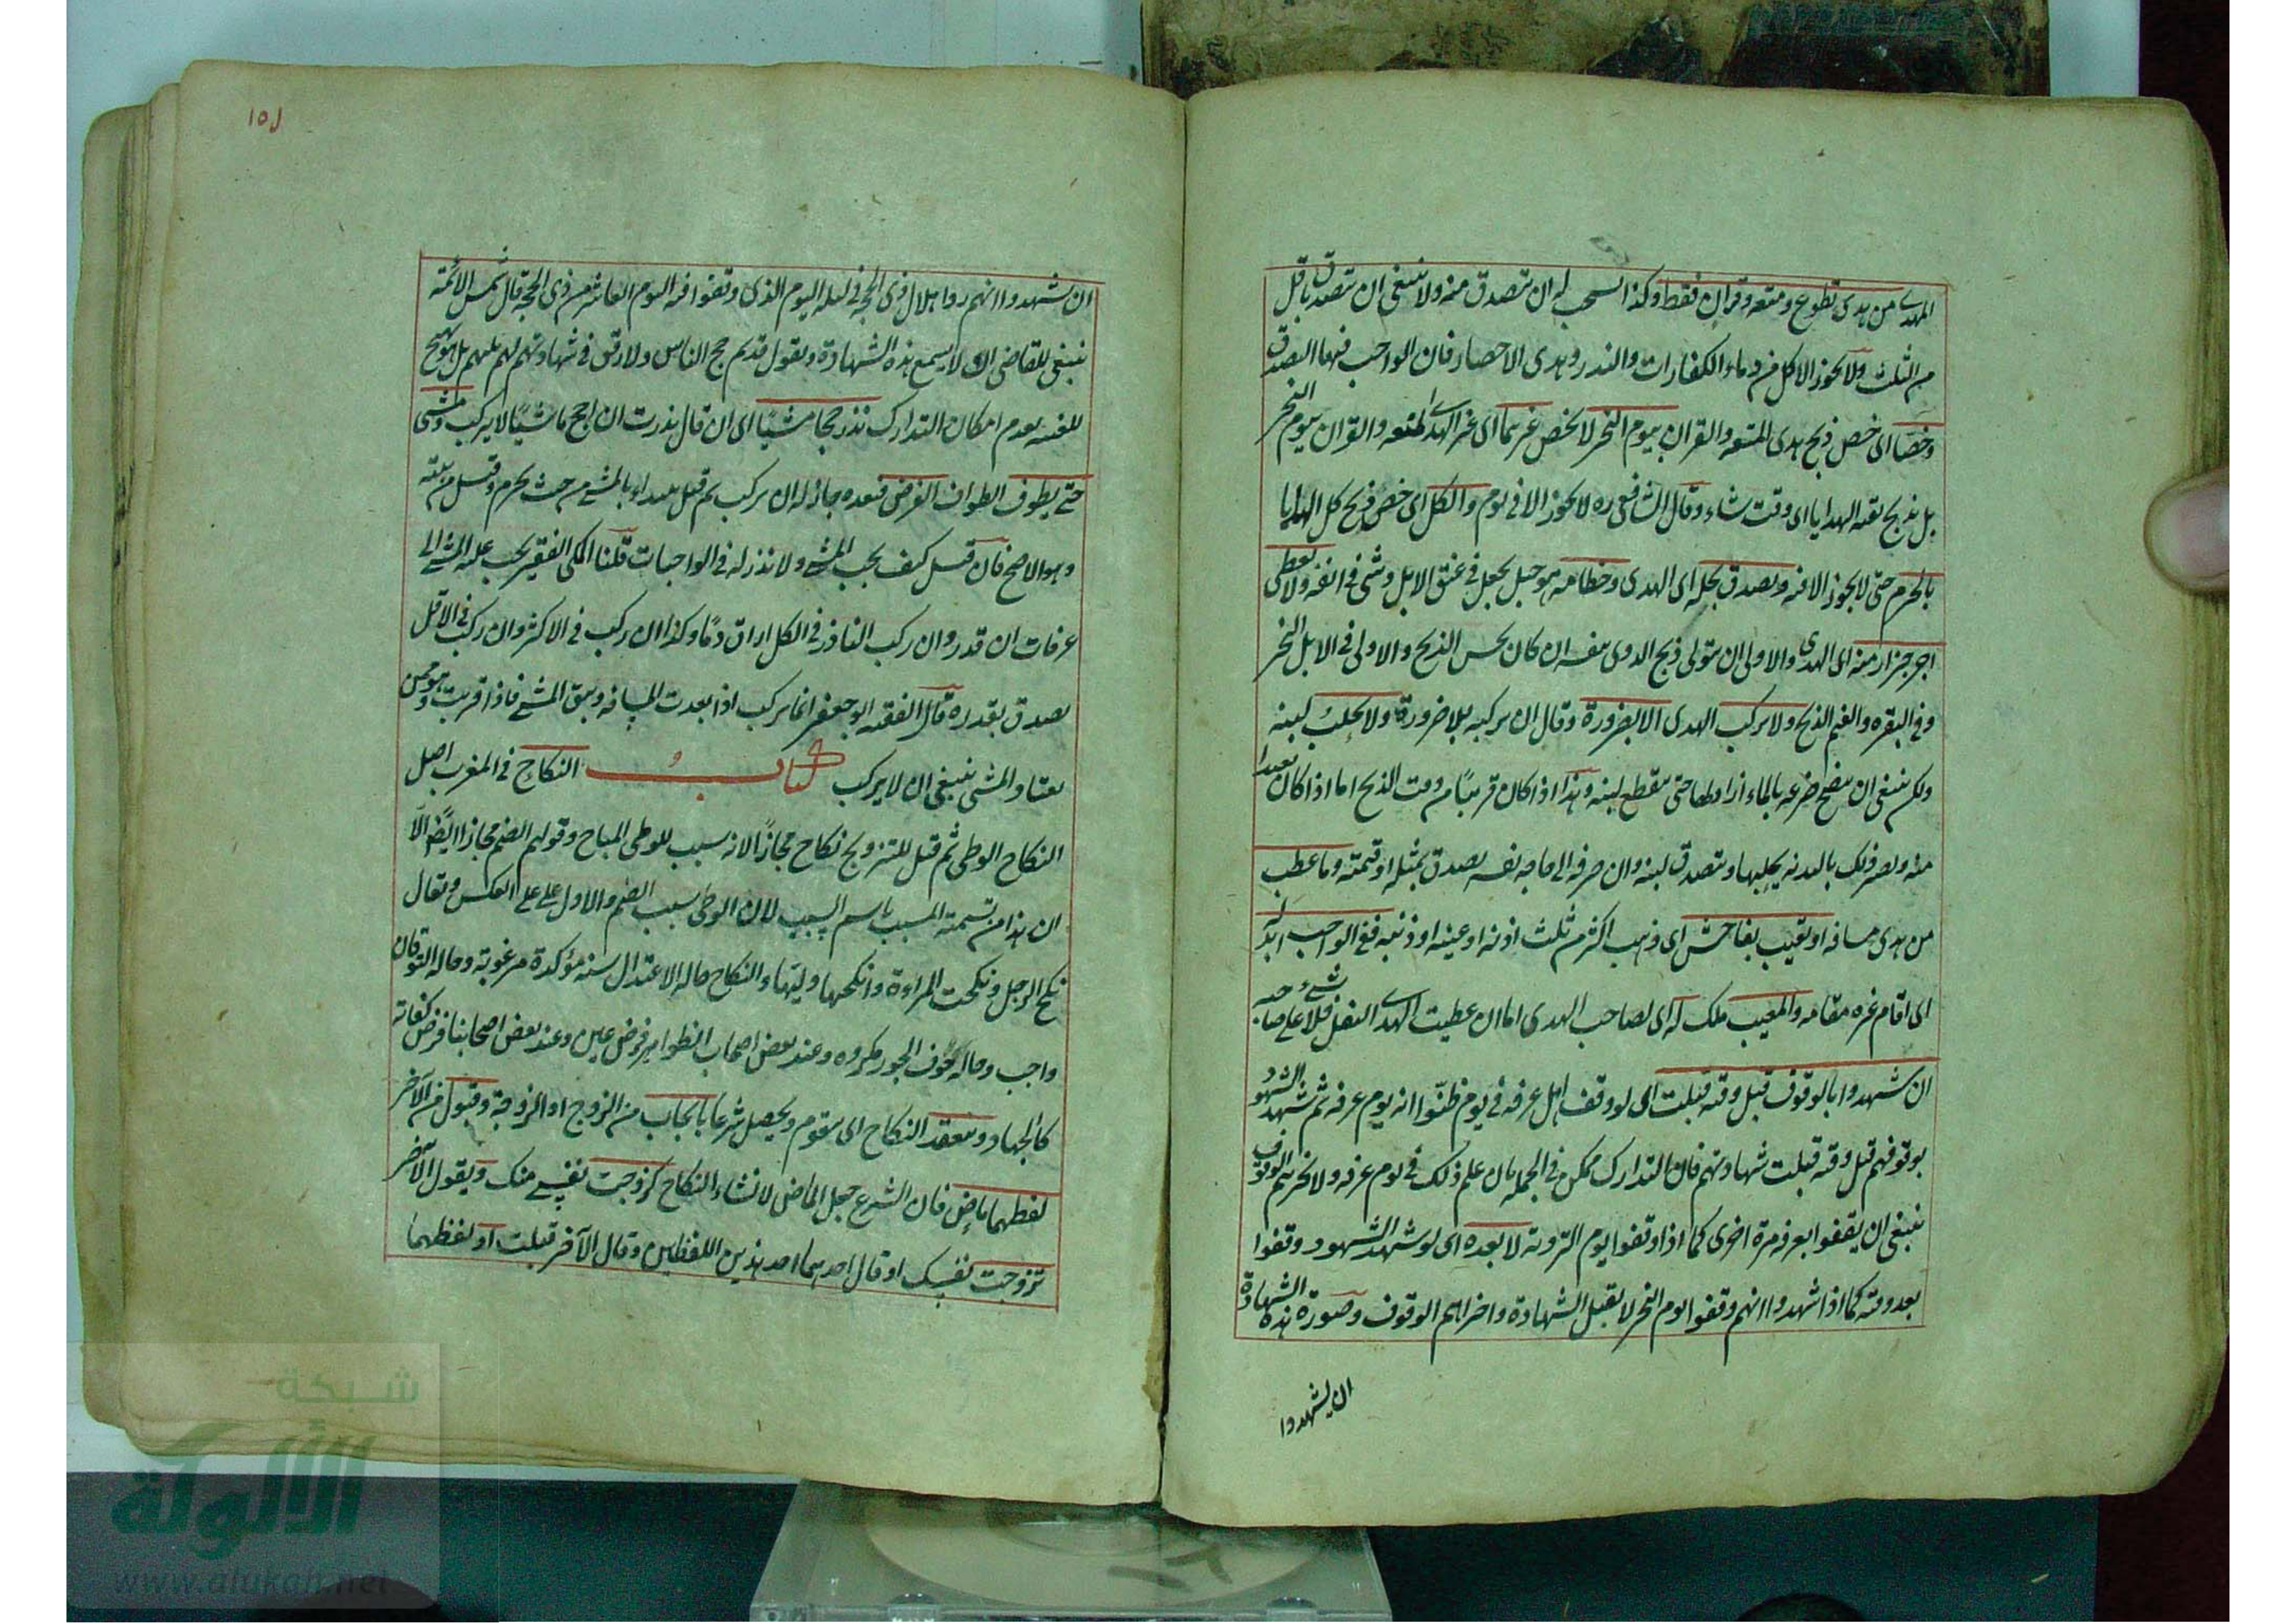 الهدى من هدى تطوع ومتعه وقران فقط وكذا يستحب له ان يتصدق منه ولا ينبغى ان يتصدق باقل
من الثلث ولا يجوز الاكل من دماء الكفارات والنذر وهدى الاحصار فان الواجب فيها التصدق
وخصا اى خص ذبح هدى المتعه والقران بيوم النحر لا يخص غيرهما اى غير الهدى لمتعه والقران بيوم النحر
بل يذبح بقيه الهدايا اى وقت شاء وقال الشافعى ره لا يجوز الا فى يوم والكل اى خص ذبح كل الهدايا
بالحرم حتى لا يجوز الا فيه ويصدق بجله اى الهدى وخطامه هو حبل يجعل فى عنق الابل وشئ فى انفه ولا يعطى
اجر جزار منه اى الهدى والاولى ان يتولى ذبح الهدى بنفسه ان كان يحسن الذبح والاولى فى الابل النحر
وفى البقره والغنم الذبح ولا يركب الهدى الا لضرورة وقال ان يركبه بلا ضرورة ولا يحلب لبنه
ولكن ينبغى ان ينضح ضرعه بالماء البارد حتى ينقطع لبنه وهذا اذا كان قريبًا من وقت الذبح اما اذا كان بعيدا
منه ويضر ذلك بالبدنه يحلبها ويتصدق لبنه وان صرفه الى حاجه نفسه يصدق بمثله او قيمته وما عطب
من هدى مسافه او تعيب بفاحش اى ذهب اكثر من ثلث اذنه او عينه او ذنبه ففى الواجب ابدله
اى اقام غيره مقامه والمعيب ملك له اى لصاحب الهدى اما ان عطبت الهدى النفل فلا شئ على صاحبه
ان شهدوا بالوقوف قبل وقته قبلت اى لو وقف اهل عرفه فى يوم ظنّوا انه يوم عرفه ثم شهد الشهود
بوقوفهم قبل وقته قبلت شهادتهم فان التدارك ممكن فى الجمله بان علم ذلك فى يوم عرفه ولا يجزيهم الوقوف
ينبغى ان يقفوا بعرفه مرة اخرى كما اذا وقفوا يوم الترويه لا بعده اى لو شهد الشهود وقفوا
بعد وقته كما اذا شهدوا انهم وقفوا يوم النحر لا يقبل الشهادة واجزاهم الوقوف وصورة هذه الشهادة
ان يشهدوا
١٥١
ان يشهدوا انهم روا هلال ذى الحجه فى ليله اليوم الذى وقفوا فيه اليوم العاشر من ذى الحجه قال شمس الائمة
ينبغى للقاضى ان لا يسمع هذه الشهادة ويقول قد تم حج الناس ولا رفق فى شهادتهم لهم بل هو تهييج
للفتنه بعدم امكان التدارك نذر حجا مشيًا اى ان قال نذرت ان احج ماشيًا لا يركب ومشى
حتى يطوف الطواف الفرض فبعده جاز له ان يركب ثم قيل يبتدا بالمشى من حيث يحرم وقيل من بيته
وهو الاصح فان قيل كيف يجب المشى ولا نذر له فى الواجبات قلنا المكى الفقير يجب عليه المشى الى
عرفات ان قدر وان ركب الناذر فى الكل اراق دمًا وكذا ان ركب فى الاكثر وان ركب فى الاقل
يصدق بقدره قال الفقيه ابو جعفر انما يركب اذا بعدت المسافه ويشق المشى فاذا قربت وهو ممن
يعتاد المشى ينبغى ان لا يركب كتاب النكاح فى المغرب اصل
النكاح الوطى ثم قيل للتزويج نكاح مجازًا لانه سبب للوطى المباح وقولهم الضم مجاز ايضًا الّا
ان هذا من تسمية المسبب باسم السبب لان الوطى سبب الضم والاول على على العكس ويقال
نكح الرجل ونكحت المراءة وانكحها وليّها والنكاح حاله الاعتدال سنه مؤكدة مرغوبة وحاله التوقان
واجب وحاله خوف الجور مكروه وعند بعض اصحاب الظواهر فرض عين وعند بعض اصحابنا فرض كفاية
كالجهاد وينعقد النكاح اى يقوم ويحصل شرعا بايجاب من الزوج او الزوجة وقبول من الآخر
لفظهما ماضٍ فان الشرع جعل الماضى لانشاء النكاح كزوجت نفسى منك ويقول الآخر
تزوجت نفسك او قال احدهما احد هذين اللفظين وقال الآخر قبلت او لفظهما
شبكة
الألوكة
www.alukah.net